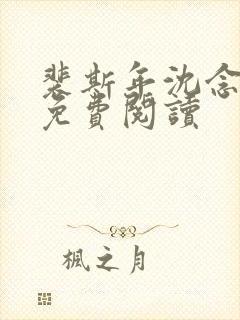 裴斯年沈念
免費閱讀
楓之月